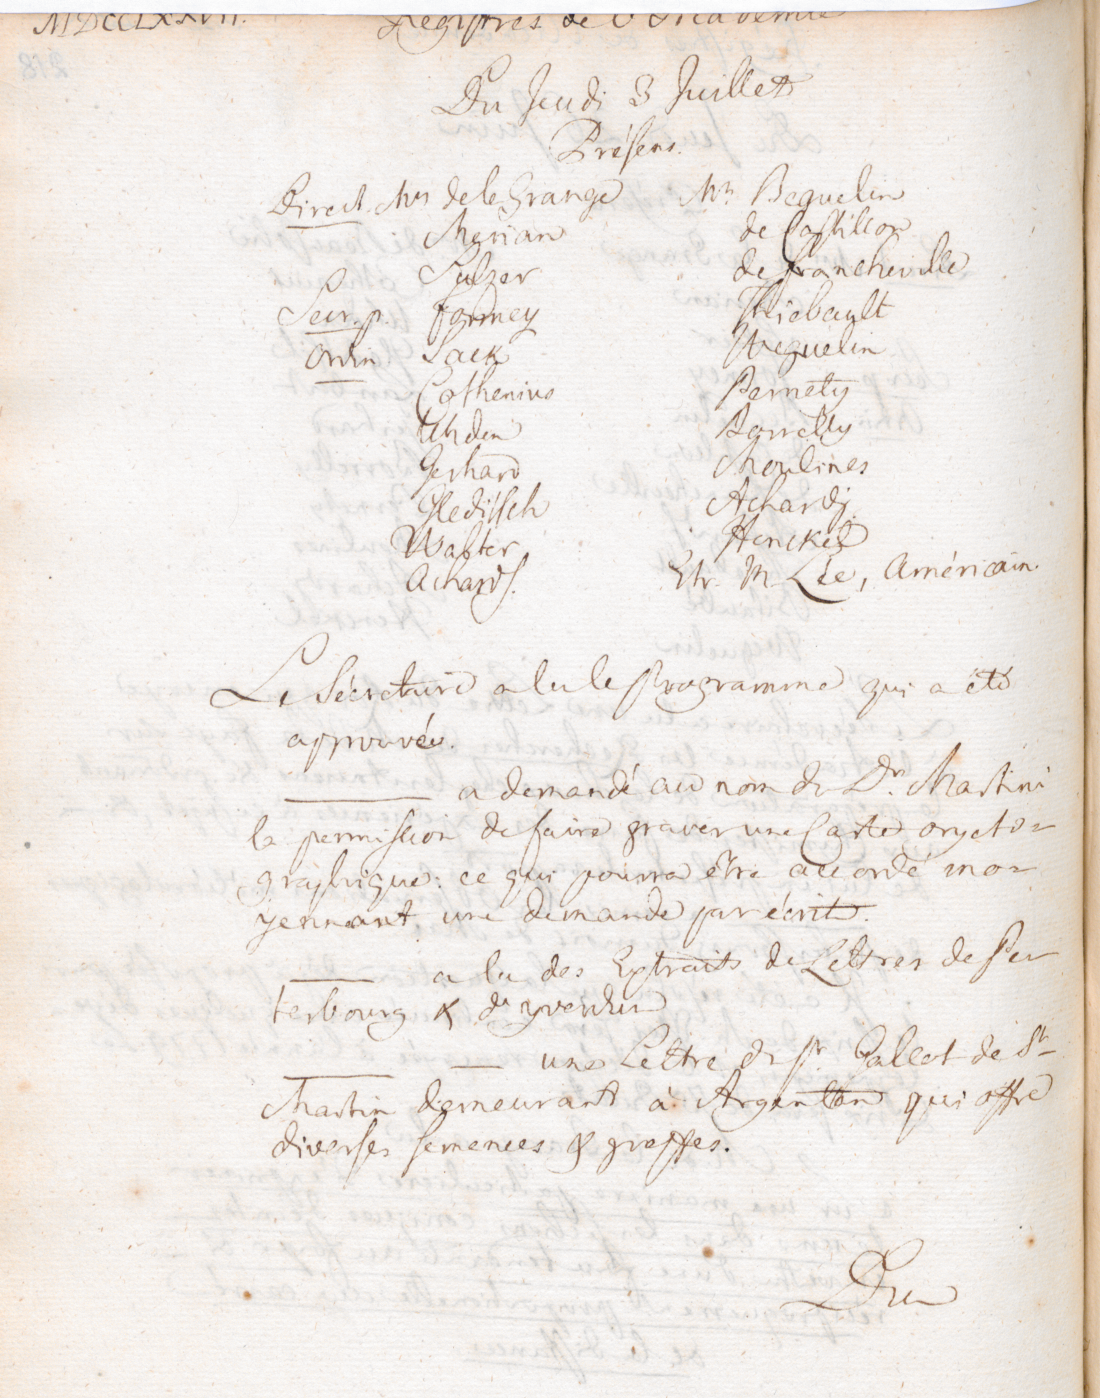 MDCCLXXVII.
Registres de l'Academie
Du Jeudi 3 Juillet
Présens.
Direct. Mrs de le Grange
Merian
Sulzer
Secr. p. Formey
Ordin Sack
Cothenius
Uhden
Gerhard
Gleditsch
Walter
Achard f.
Mrs Beguelin
de Castillon
de Francheville
Thiebault
Weguelin
Pernety
Borrelly
Moulines
Achard j.
Henckel
Etr. M Lée, Américain.
Le Sécretaire a lu le Programme qui a été
approuvé.
a demandé au nom du Dr. Martini
la permission de faire graver une Carte orycto=
graphique: ce qui pourra être accordé mo=
yennant une demande par écrit.
a lu des Extraits de Lettres de Pe
tersbourg & d'Yverdun
une Lettre du Sr. Gallot de St
Martin demeurant à Argenton qui offre
diverses semences & greffes.
Du